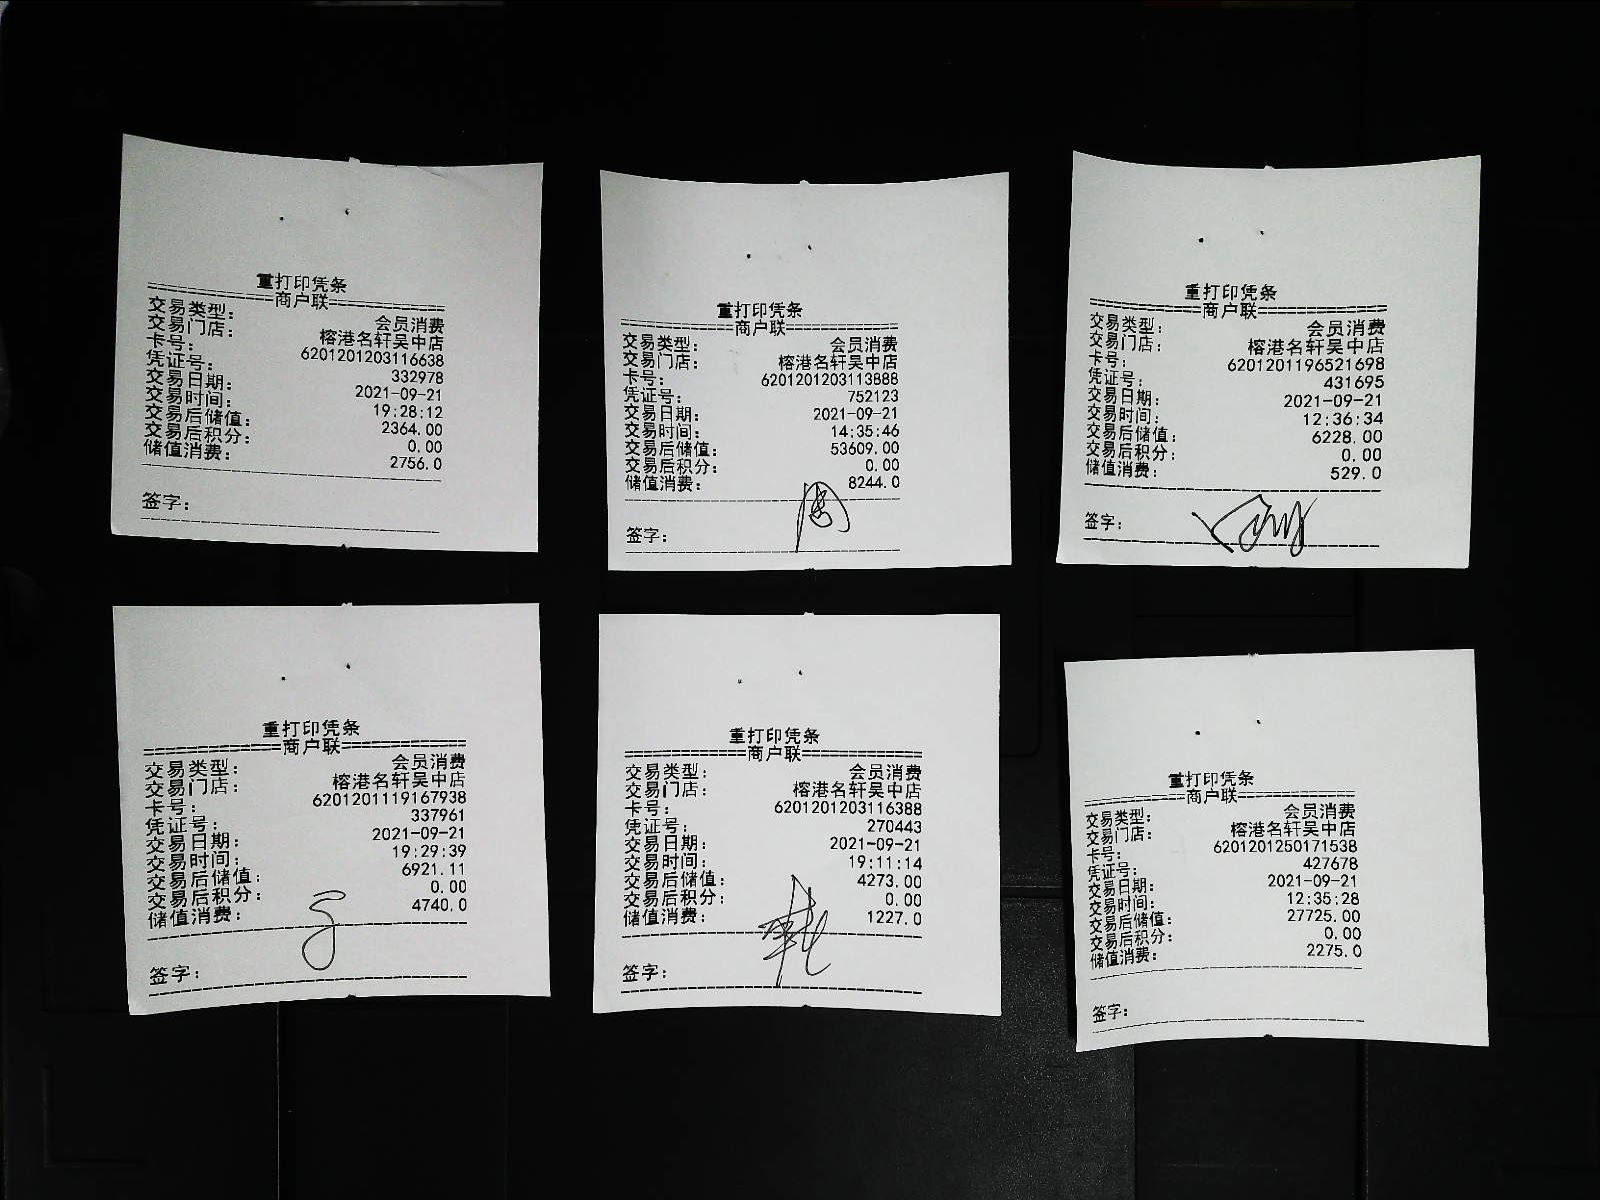 重打印凭条
============商户联============
交易类型: 会员消费
交易门店: 榕港名轩吴中店
卡号: 6201201203116638
凭证号: 332978
交易日期: 2021-09-21
交易时间: 19:28:12
交易后储值: 2364.00
交易后积分: 0.00
储值消费: 2756.0
签字:
重打印凭条
============商户联============
交易类型: 会员消费
交易门店: 榕港名轩吴中店
卡号: 6201201203113888
凭证号: 752123
交易日期: 2021-09-21
交易时间: 14:35:46
交易后储值: 53609.00
交易后积分: 0.00
储值消费: 8244.0
签字:
重打印凭条
============商户联============
交易类型: 会员消费
交易门店: 榕港名轩吴中店
卡号: 6201201196521698
凭证号: 431695
交易日期: 2021-09-21
交易时间: 12:36:34
交易后储值: 6228.00
交易后积分: 0.00
储值消费: 529.0
签字:
重打印凭条
============商户联============
交易类型: 会员消费
交易门店: 榕港名轩吴中店
卡号: 6201201119167938
凭证号: 337961
交易日期: 2021-09-21
交易时间: 19:29:39
交易后储值: 6921.11
交易后积分: 0.00
储值消费: 4740.0
签字:
重打印凭条
============商户联============
交易类型: 会员消费
交易门店: 榕港名轩吴中店
卡号: 6201201203116388
凭证号: 270443
交易日期: 2021-09-21
交易时间: 19:11:14
交易后储值: 4273.00
交易后积分: 0.00
储值消费: 1227.0
签字:
重打印凭条
============商户联============
交易类型: 会员消费
交易门店: 榕港名轩吴中店
卡号: 6201201250171538
凭证号: 427678
交易日期: 2021-09-21
交易时间: 12:35:28
交易后储值: 27725.00
交易后积分: 0.00
储值消费: 2275.0
签字: